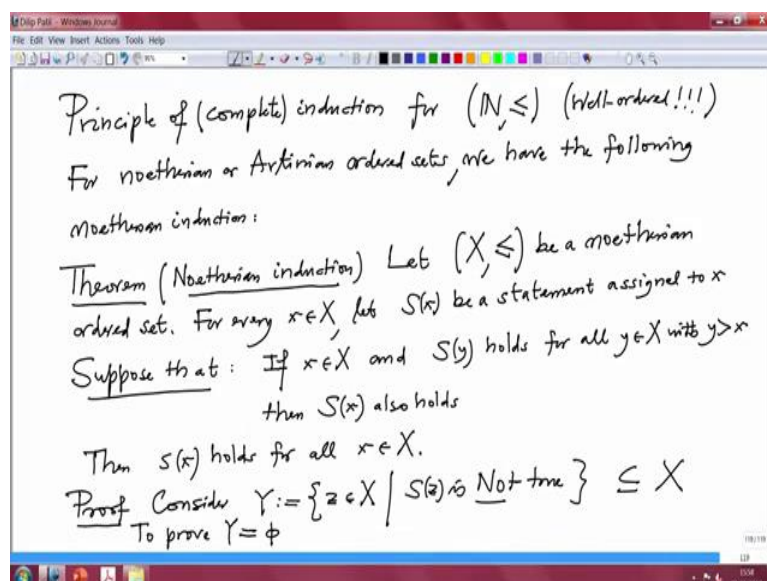 Dilip Patil - Windows Journal
File Edit View Insert Actions Tools Help
Principle of (complete) induction for (ℕ, ≤) (Well-ordered!!!)
For noetherian or Artinian ordered sets, we have the following
noetherian induction:
Theorem (Noetherian induction) Let (X, ≤) be a noetherian
ordered set. For every x ∈ X, let S(x) be a statement assigned to x
Suppose that: If x ∈ X and S(y) holds for all y ∈ X with y > x
then S(x) also holds
Then S(x) holds for all x ∈ X.
Proof Consider Y := {z ∈ X | S(z) is Not true} ⊆ X
To prove Y = ϕ
118/118
119
15:58